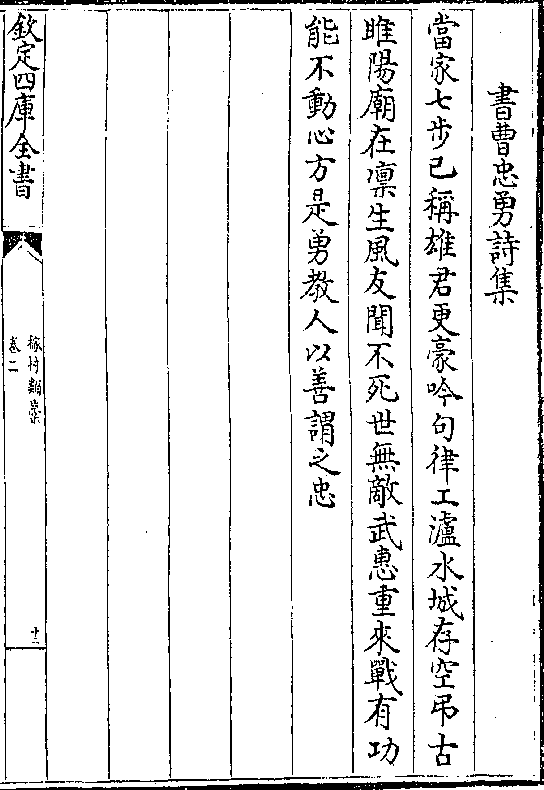 書曹忠勇詩集
當家七步已稱雄君更豪吟句律工瀘水城存空弔古
睢陽廟在凛生風友聞不死世無敵武惠重來戰有功
能不動心方是勇教人以善謂之忠
欽定四庫全書
稼村類藁
卷二
十二